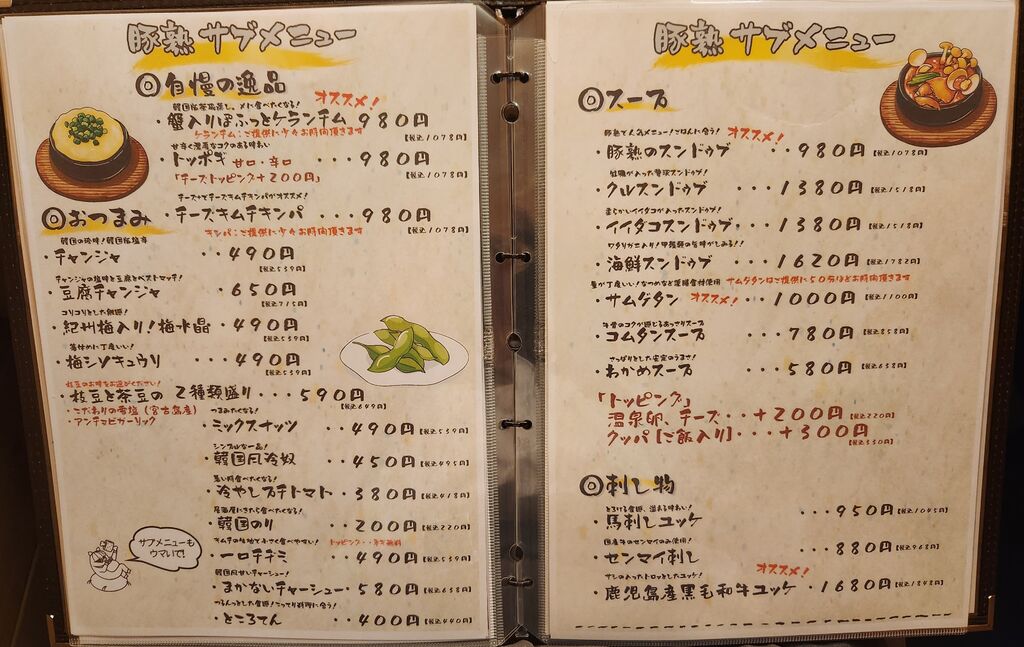 豚熟 サブメニュー
◎自慢の逸品
オススメ!
・蟹入りぽふっとケランチム 980円
ケランチム:ご提供に少々お時間頂きます
【税込1078円】
甘辛く濃厚なコクのある味わい
・トッポギ 甘口・辛口 ・・・980円
「チーズトッピング+200円」
【税込1078円】
チーズ+とチーズキムチキンパがオススメ!
・チーズキムチキンパ ・・・980円
キンパ:ご提供に少々お時間頂きます
【税込1078円】
◎おつまみ
・チャンジャ ・・490円
【税込539円】
チャンジャの塩味と豆腐とベストマッチ!
・豆腐チャンジャ ・・650円
【税込715円】
コリコリとした触感!
・紀州梅入り!梅水晶 ・490円
【税込539円】
箸休めに丁度いい!
・梅シソキュウリ ・・・490円
【税込539円】
枝豆のお味をお選びください!
・枝豆と茶豆の 2種類盛り ・・590円
【税込649円】
・こだわりの雪塩(宮古島産)
・アンチョビガーリック
つまみたくなる!
・ミックスナッツ ・・490円【税込539円】
シンプルな一品!
・韓国風冷奴 ・・450円【税込495円】
暑い時食べたくなる!
・冷やしプチトマト・380円【税込418円】
居酒屋にきたら食べたくなる!
・韓国のり ・・200円【税込220円】
トッピング・・ネギ無料
・一口チヂミ ・・490円【税込539円】
韓国風甘いチャーシュー!
・まかないチャーシュー・580円【税込638円】
つるんっとした食感!こってり料理に合う!
・ところてん ・・400円【税込440円】
サブメニューも
ウマいで!
豚熟 サブメニュー
◎スープ
豚熟で人気メニュー!ごはんに合う!
オススメ!
・豚熟のスンドゥブ ・・・980円【税込1078円】
牡蠣が入った贅沢スンドゥブ!
・クルスンドゥブ ・・・1380円【税込1518円】
まるがいイイダコが入ったスンドゥブ!
・イイダコスンドゥブ ・・1380円【税込1518円】
・海鮮スンドゥブ ・・・1620円【税込1782円】
サムゲタンはご提供に50分ほどお時間頂きます
・サムゲタン オススメ! ・・1000円【税込1100円】
牛骨のコクが感じるあっさりスープ
・コムタンスープ ・・・780円【税込858円】
さっぱりとした安定のうまさ!
・わかめスープ ・・・580円【税込638円】
「トッピング」
温泉卵、チーズ・・・+200円【税込220円】
クッパ【ご飯入り】・・・+300円
【税込330円】
◎刺し物
とろける食感、溢れる味わい!
・馬刺しユッケ ・・・950円【税込1045円】
国産牛のセンマイのみ使用!
・センマイ刺し ・・・880円【税込968円】
ナシの入ったトロッとしたユッケ!
オススメ!
・鹿児島産黒毛和牛ユッケ・1680円【税込1848円】